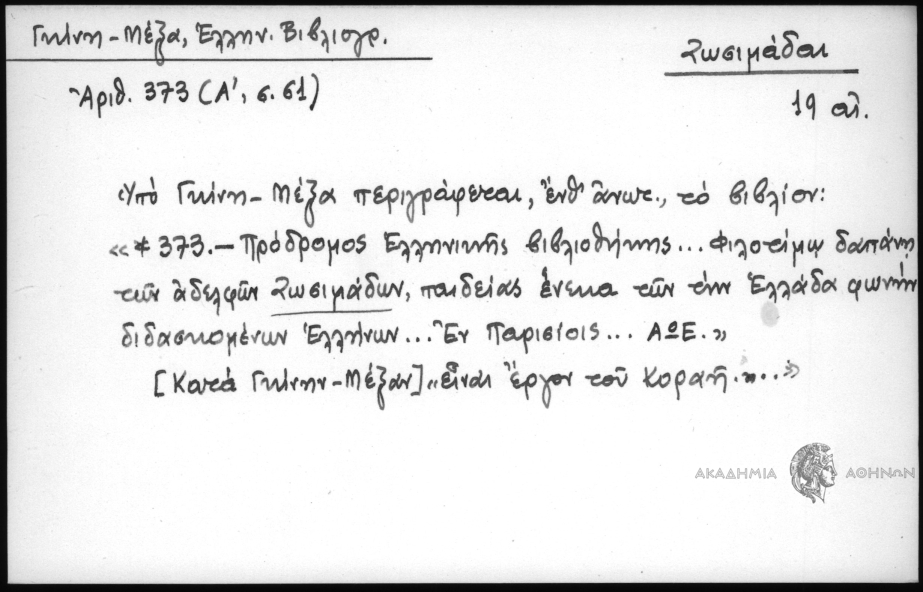 Γκίνη-Μέξα, Ἑλλην. Βιβλιογρ.
Ζωσιμάδαι
Ἀριθ. 373 (Α', σ. 61)
19 αἰ.
Ὑπό Γκίνη-Μέξα περιγράφεται, ἔνθ' ἄνωτ., τό βιβλίον:
«*373.- Πρόδρομος Ἑλληνικῆς βιβλιοθήκης... Φιλοτίμῳ δαπάνῃ
τῶν ἀδελφῶν Ζωσιμάδων, παιδείας ἕνεκα τῶν τήν Ἑλλάδα φωνήν
διδασκομένων Ἑλλήνων... Ἐν Παρισίοις... ΑΩΕ.»
[Κατά Γκίνην-Μέξαν] «εἶναι ἔργον τοῦ Κοραῆ.»..»
ΑΚΑΔΗΜΙΑ ΑΘΗΝΩΝ